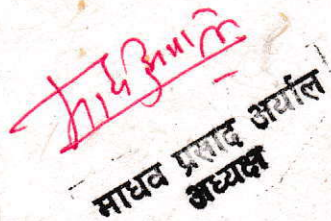 माधव प्रसाद अर्याल
अध्यक्ष